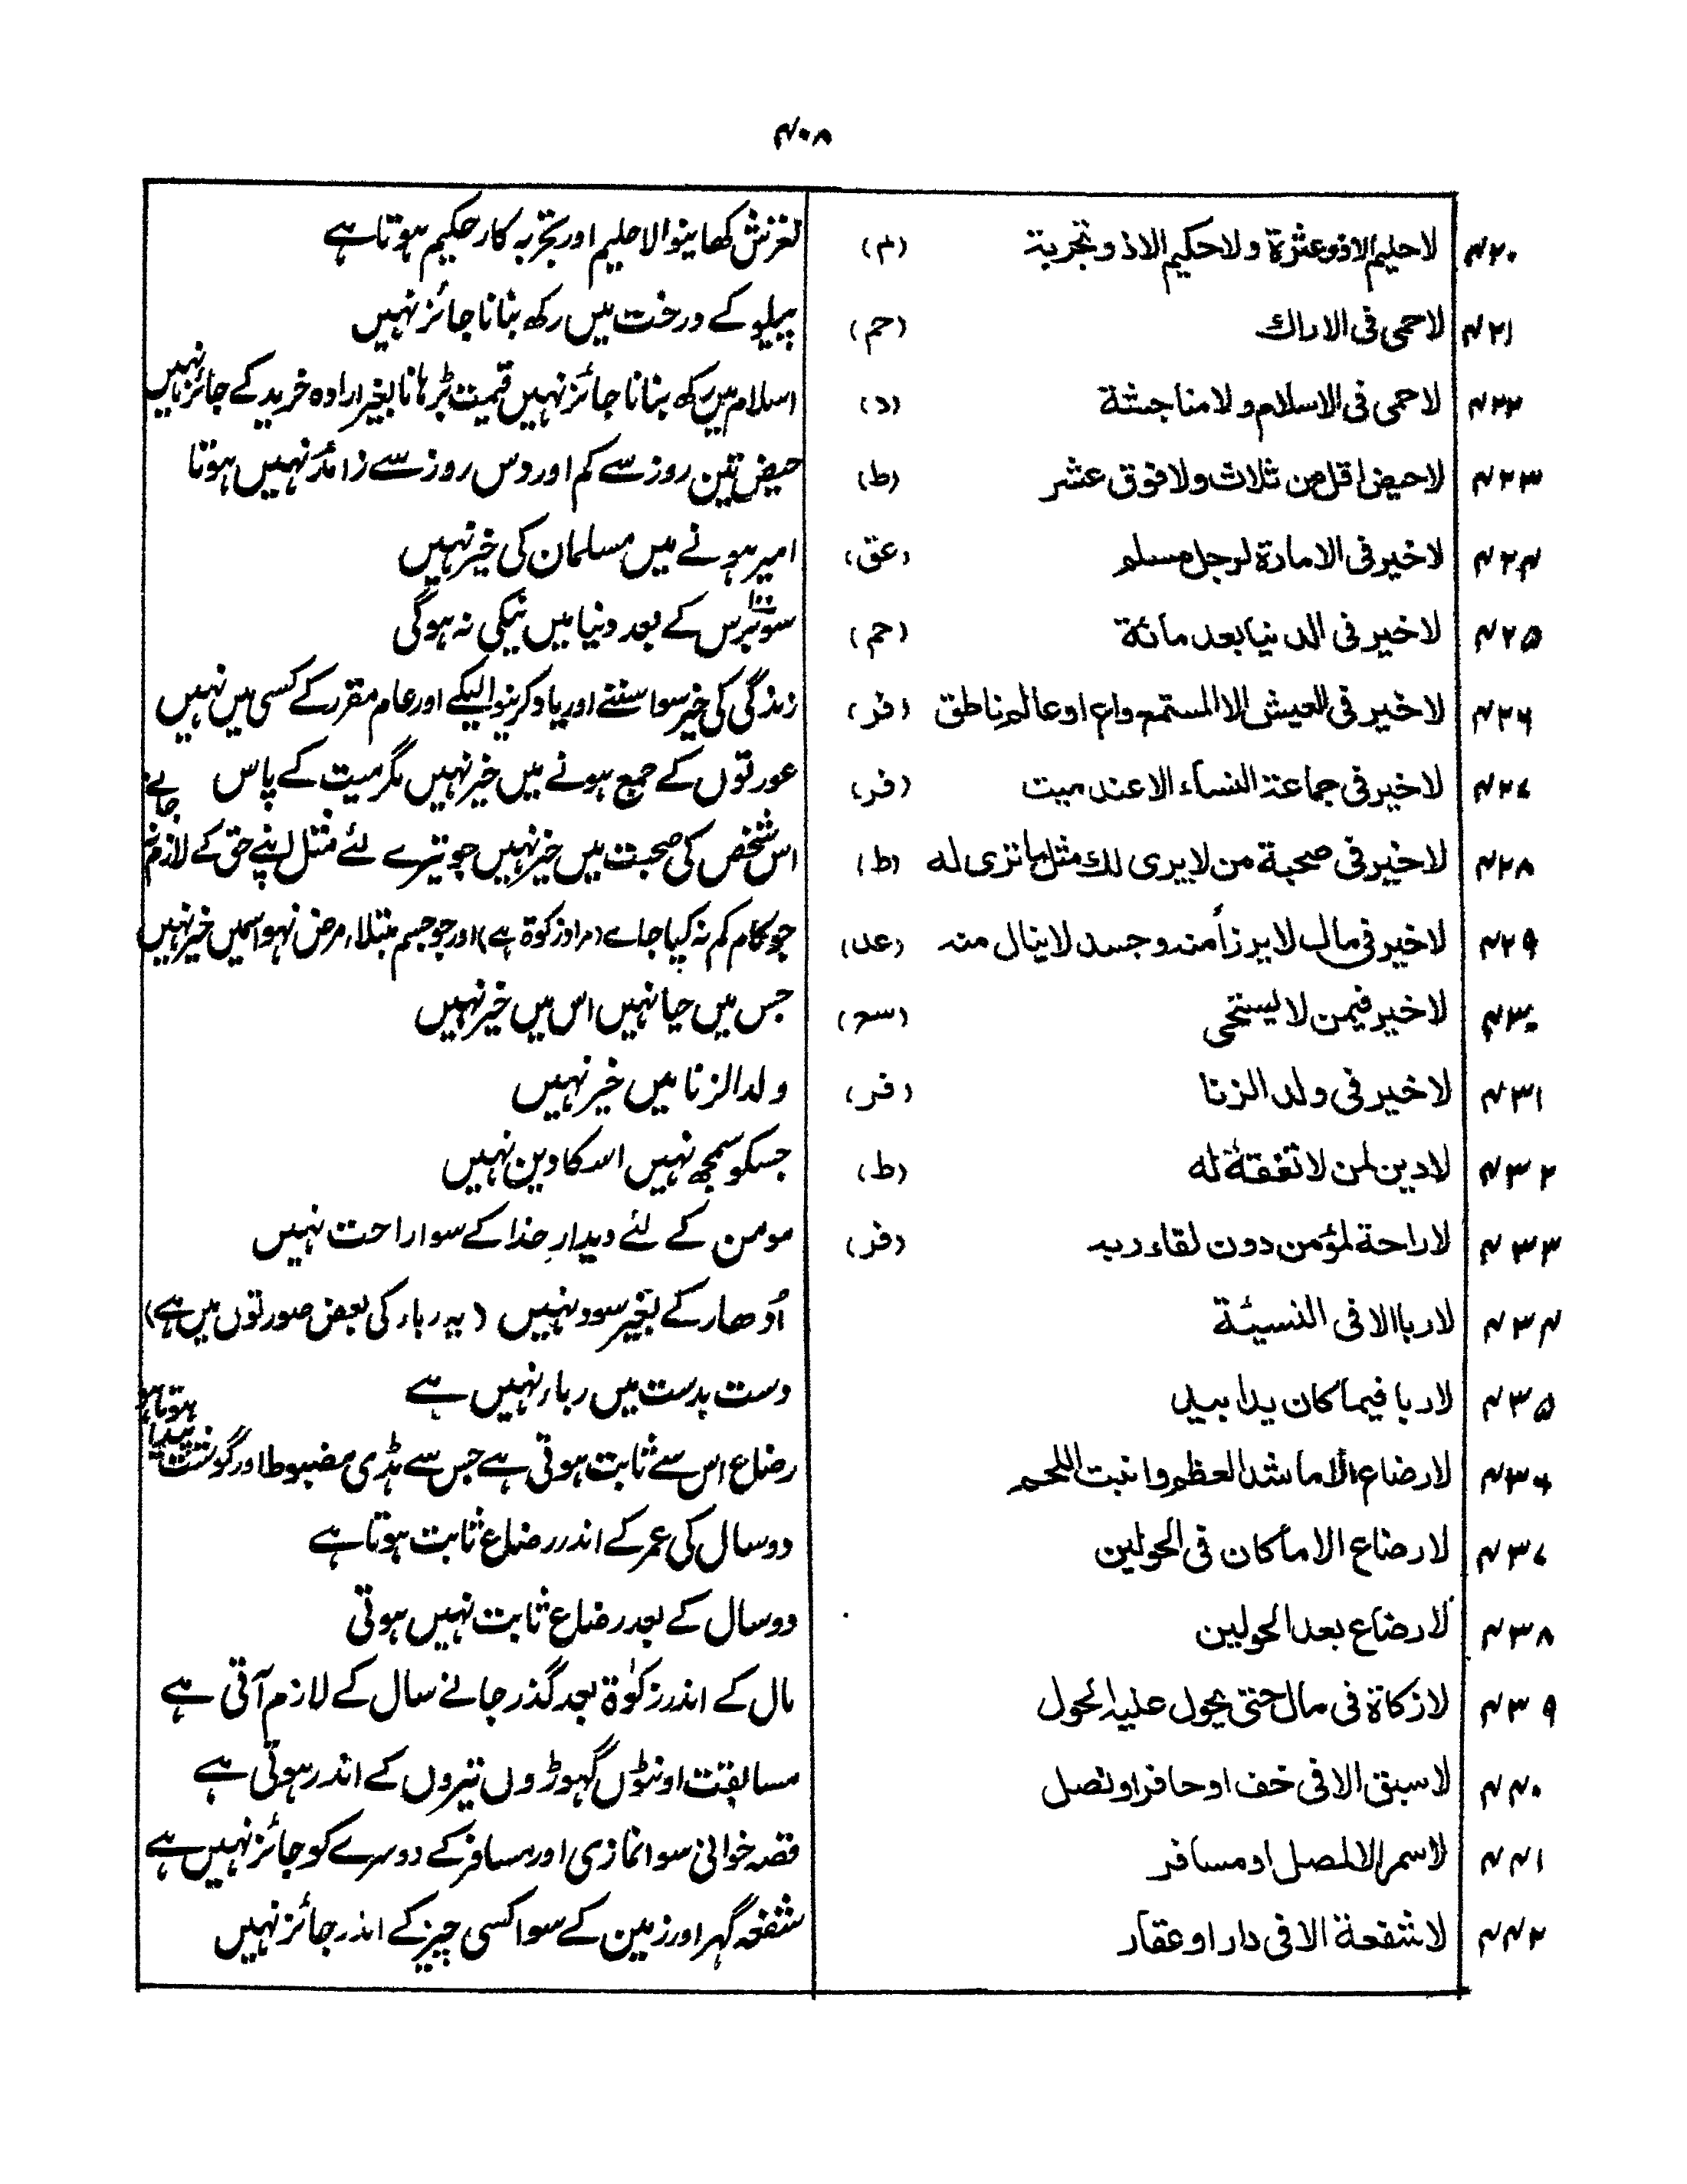 ۴۰۸
۴۲۰ لاحلیم الاذوعثرة ولاحکیم الاذ وتجربة (م) لغزش کھانیوالا حلیم اور تجربہ کار حکیم ہوتا ہے
۴۲۱ لاحمی فی الاراك (حم) پیلو کے درخت میں رکھ بنانا جائز نہیں
۴۲۲ لاحمی فی الاسلام ولا مناجشة (د) اسلام میں رکھ بنانا جائز نہیں قیمت بڑہانا بغیر ارادہ خرید کے جائز نہیں
۴۲۳ لاحیض اقل من ثلاث ولا فوق عشر (ط) حیض تین روز سے کم اور دس روز سے زائد نہیں ہوتا
۴۲۴ لاخیر فی الامارة لرجل مسلم (عق) امیر ہونے میں مسلمان کی خیر نہیں
۴۲۵ لاخیر فی الدنیا بعد مائة (حم) سو۱۰۰ برس کے بعد دنیا میں نیکی نہ ہوگی
۴۲۶ لاخیر فی العیش الا لمستمع واع اوعالم ناطق (فر) زندگی کی خیر سوا سننے اور یاد کرنیوالیکے اور عام مقرر کے کسی میں نہیں
۴۲۷ لاخیر فی جماعة النساء الا عند میت (فر) عورتوں کے جمع ہونے میں خیر نہیں مگر میت کے پاس
۴۲۸ لاخیر فی صحبة من لایری لك مثل ما تری له (ط) اس شخص کی صحبت میں خیر نہیں جو تیرے لئے مثل اپنے حق کے لازم نہ جانے
۴۲۹ لاخیر فی مال لا یرزأ منه وجسد لاینال منه (عد) جو کام کم نہ کیا جاے (مراد زکوة ہے) اور جو جسم مبتلاء مرض نہو اسمیں خیر نہیں
۴۳۰ لاخیر فیمن لا یستحی (سر) جس میں حیا نہیں اس میں خیر نہیں
۴۳۱ لاخیر فی ولد الزنا (فر) ولد الزنا میں خیر نہیں
۴۳۲ لادین لمن لا تفقة له (ط) جسکو سمجھ نہیں اسکا دین نہیں
۴۳۳ لاراحة لمؤمن دون لقاء ربه (فر) مومن کے لئے دیدارِ خدا کے سوا راحت نہیں
۴۳۴ لاربا الا فی النسیئة اُدھار کے بغیر سود نہیں (یہ رباء کی بعض صورتوں میں ہے)
۴۳۵ لاربا فیما کان یدا بید دست بدست میں رباء نہیں ہے
۴۳۶ لارضاع الا ما شد العظم وانبت اللحم رضاع اس سے ثابت ہوتی ہے جس سے ہڈی مضبوط اور گوشت پیدا ہوتا ہو
۴۳۷ لارضاع الا ما کان فی الحولین دو سال کی عمر کے اندر رضاع ثابت ہوتا ہے
۴۳۸ لارضاع بعد الحولین دو سال کے بعد رضاع ثابت نہیں ہوتی
۴۳۹ لازکاة فی مال حتی یحول علیه الحول مال کے اندر زکوٰة بعد گذر جانے سال کے لازم آتی ہے
۴۴۰ لاسبق الا فی خف اوحافر اونصل مسابقت اونٹوں گہوڑوں تیروں کے اندر ہوتی ہے
۴۴۱ لاسمر الا لمصل اومسافر قصہ خوانی سوا نمازی اور مسافر کے دوسرے کو جائز نہیں ہے
۴۴۲ لاشفعة الا فی دار او عقار شفعہ گہر اور زمین کے سوا کسی چیز کے اندر جائز نہیں